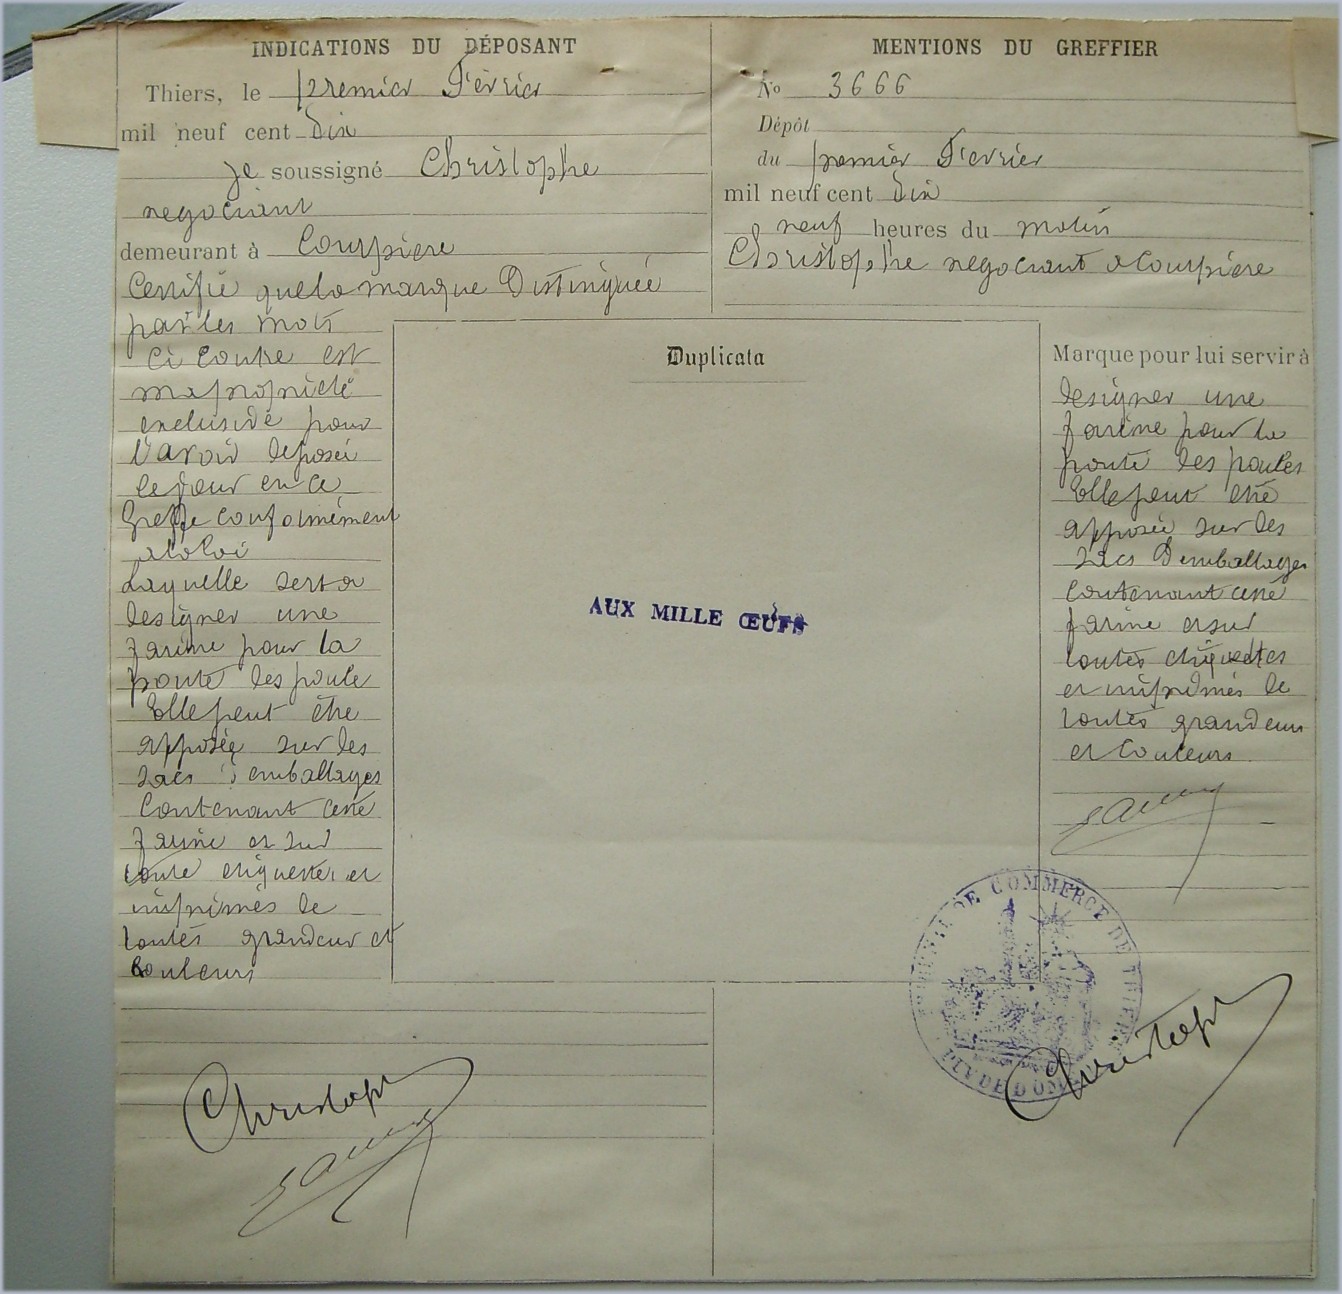 INDICATIONS DU DÉPOSANT
Thiers, le premier Février
mil neuf cent dix
Je soussigné Christophe
negociant
demeurant à Courpiere
Certifie que la marque Distinguée
par les mots
Ci Contre est
ma propriété
exclusive pour
l'avoir deposée
ce jour en ce
Greffe conformément
a la loi
Laquelle sera a
designer une
farine pour la
ponte des poule
Elle peut être
apposée sur les
sacs d'emballages
Contenant cette
farine et sur
toute etiquettes et
imprimés de
toutes grandeur et
Couleurs
Christophe
MENTIONS DU GREFFIER
No 3666
Dépôt
du premier Fevrier
mil neuf cent dix
neuf heures du matin
Christophe negociant a Courpière
Duplicata
AUX MILLE ŒUFS
Marque pour lui servir à
designer une
farine pour la
ponte des poules
Elle peut etre
apposée sur les
sacs D'emballages
Contenant cette
farine et sur
toutes etiquettes
et imprimés de
toutes grandeurs
et Couleurs
TRIBUNAL DE COMMERCE DE THIERS
PUY DE DOME
Christophe